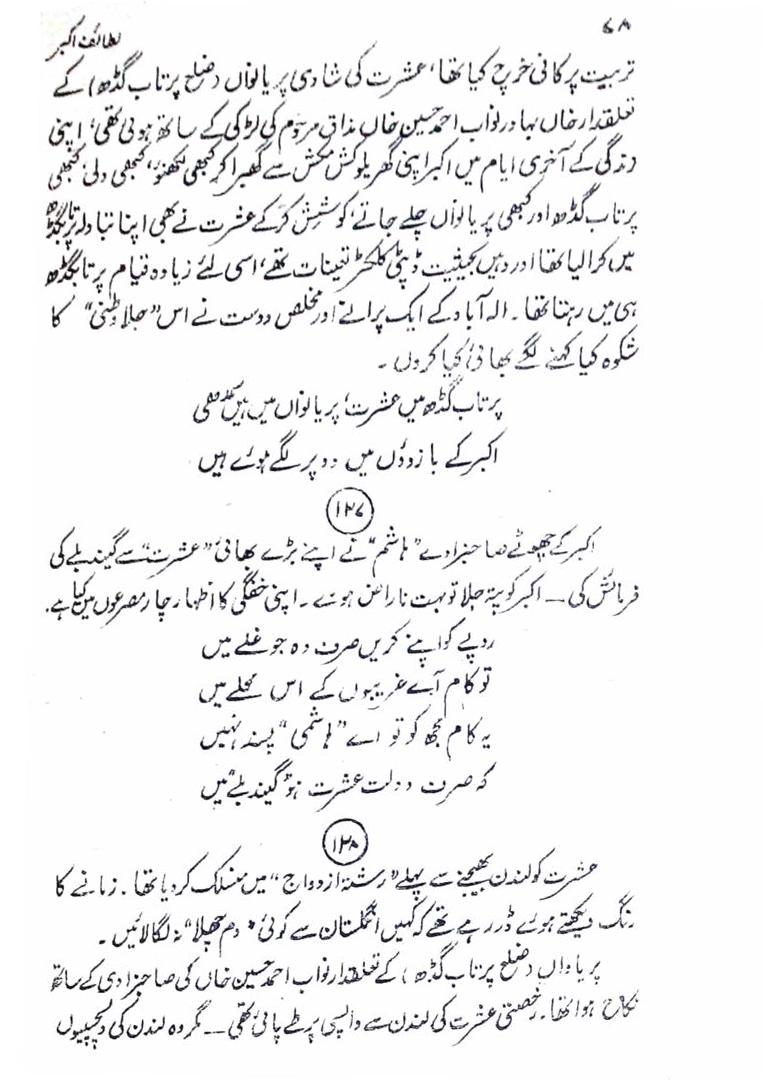 ۶۸
لطائف اکبر
تربیت پر کافی خرچ کیا تھا، عشرت کی شادی پریانواں (ضلع پرتاب گڈھ) کے
تعلقدار خاں بہادر نواب احمد حسین خاں مذاق مرحوم کی لڑکی کے ساتھ ہوئی تھی، اپنی
زندگی کے آخری ایام میں اکبر اپنی گھریلو کش مکش سے گھبرا کر کبھی لکھنؤ، کبھی دلی، کبھی
پرتاب گڈھ اور کبھی پریانواں چلے جاتے، کوشش کرکے عشرت نے بھی اپنا تبادلہ پرتابگڈھ
میں کرا لیا تھا اور وہیں بحیثیت ڈپٹی کلکٹر تعینات تھے، اسی لئے زیادہ قیام پرتابگڈھ
ہی میں رہتا تھا۔ الہ آباد کے ایک پرانے اور مخلص دوست نے اس "جلا وطنی" کا
شکوہ کیا کہنے لگے بھائی کیا کروں۔
پرتاب گڈھ میں عشرت، پریانواں میں ہیں
اکبر کے بازوؤں میں دو پر لگے ہوئے ہیں
۱۲۷
اکبر کے چھوٹے صاحبزادے "ہاشم" نے اپنے بڑے بھائی "عشرت" سے گیند بلے کی
فرمائش کی ــ اکبر کو پتہ چلا تو بہت ناراض ہوئے۔ اپنی خفگی کا اظہار چار مصرعوں میں کیا ہے۔
روپے کو اپنے کریں صرف وہ جو غلے میں
تو کام آئے غریبوں کے اس محلے میں
یہ کام مجھ کو تو اے "ہاشمی" پسند نہیں
کہ صرف دولت عشرت ہو "گیند بلے" میں
۱۲۸
عشرت کو لندن بھیجنے سے پہلے "رشتۂ ازدواج" میں منسلک کردیا تھا۔ زمانے کا
رنگ دیکھتے ہوئے ڈر رہے تھے کہ کہیں انگلستان سے کوئی "دم چھلا" نہ لگا لائیں۔
پریاواں (ضلع پرتاب گڈھ) کے تعلقدار نواب احمد حسین خاں کی صاحبزادی کے ساتھ
نکاح ہوا تھا۔ رخصتی عشرت کی لندن سے واپسی پر طے پائی تھی ــ مگر وہ لندن کی دلچسپیوں